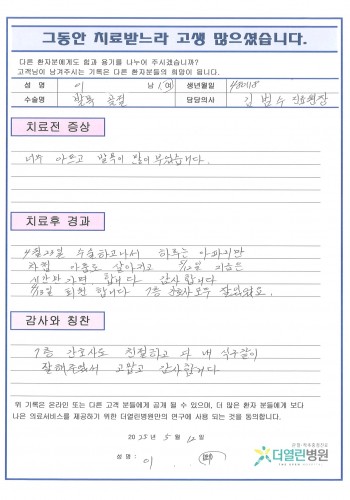 그동안 치료받느라 고생 많으셨습니다.
다른 환자분에게도 힘과 용기를 나누어 주시겠습니까?
고객님이 남겨주시는 기록은 다른 환자분들의 희망이 됩니다.
성 명 이 남 / 여 생년월일
수술명 발목 골절 담당의사 김범수 진료원장
치료전 증상
너무 아프고 발목이 많이 부었습니다.
치료후 경과
4월 23일 수술하고나서 하루는 아파지만
차츰 아픔도 살아지고 5/12일 지금은
시간만 가면 합니다 감사합니다
5/13일 퇴원 합니다 7층 간호사 모두 잘있어요.
감사와 칭찬
7층 간호사도 친절하고 다 내 식구같이
잘해주셔서 고맙고 감사합니다
위 기록은 온라인 또는 다른 고객 분들에게 공개 될 수 있으며, 더 많은 환자 분들에게 보다
나은 의료서비스를 제공하기 위한 더열린병원만의 연구에 사용 되는 것을 동의합니다.
2025년 5월 12일
성 명 : 이
관절·척추중점진료
더열린병원